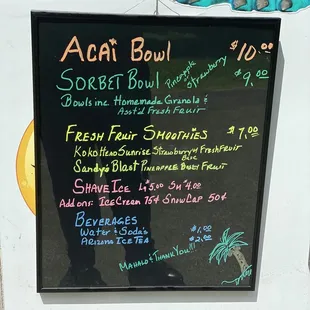 Acai Bowl $10.00
Sorbet Bowl Pineapple or Strawberry $9.00
Bowls inc. Homemade Granola &
Asst'd Fresh Fruit
Fresh Fruit Smoothies $7.00
Koko Head Sunrise Strawberry Fresh Fruit
Sandy's Blast Pineapple Fruit
Shave Ice Lg 5.00 Sm 4.00
Add ons: Ice Cream 75¢ Snow Cap 50¢
Beverages
Water & Soda's $1.00
Arizona Ice Tea $2.00
Mahalo & Thank You!!!